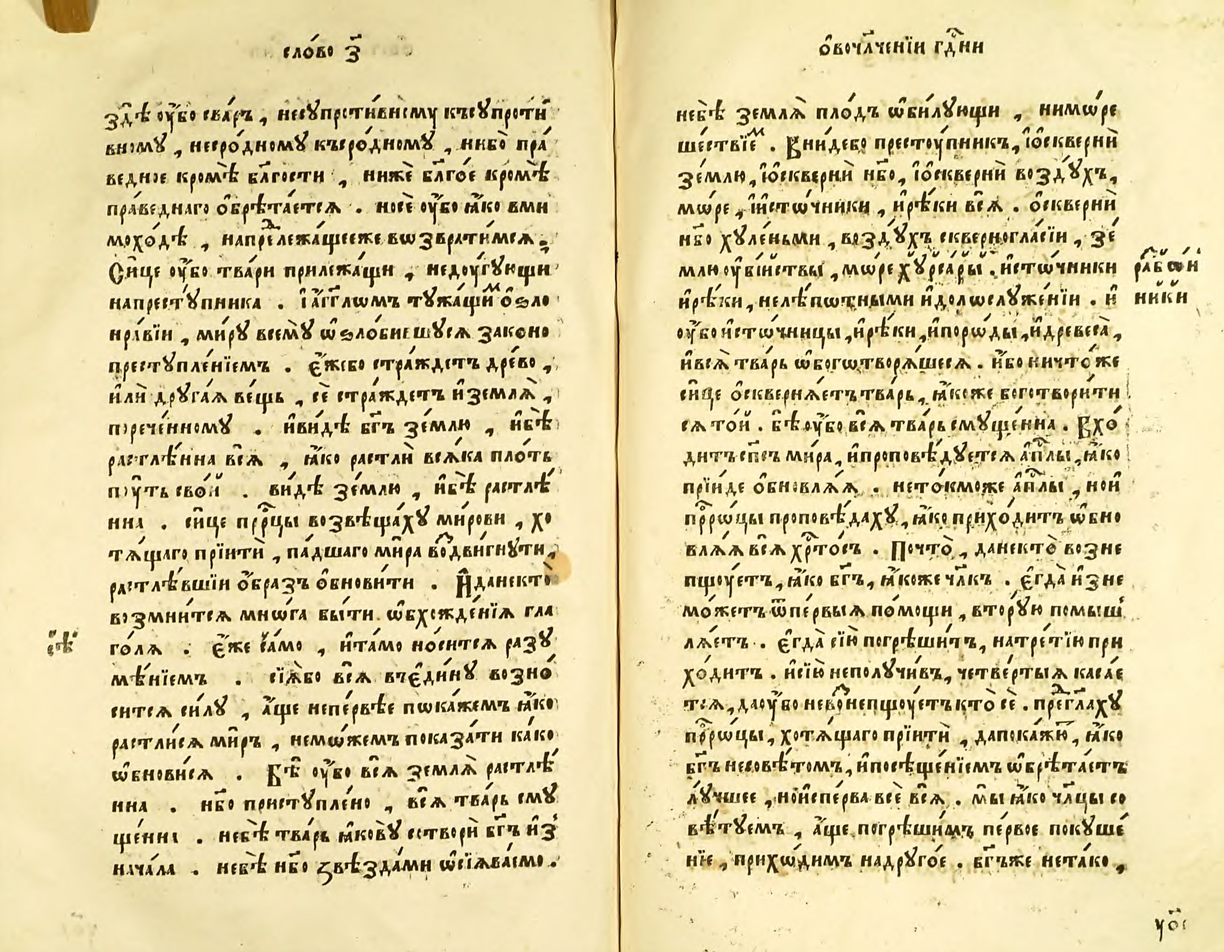 сло́во з҃
здѣ̀ ᲂу҆́бо сва́ръ , несупроти́вному къ супроти́
вному , несро́дному къ сро́дному , нибо пра́
ведное кромѣ̀ бл҃гости , нижѐ бл҃го́е кромѣ̀
пра́веднаго ѡ҆брѣта́ется . но се ᲂу҆́бо ꙗ҆́ко вми
мохо́дѣ , на предлежа́щее же возврати́мся .
Си́це ᲂу҆́бо тва́ри прилежа́щи , недоу́гующи
на престу́пника . і҆ а҆́гг҃лѡмъ тужа́щимъ ѡ҆ ѕло
нра́вїи , ми́ру всему̀ ѡ҆ѕло́бившуся законо
преступле́нїемъ . є҆́же бо стра́ждетъ дре́во ,
и҆лѝ друга́ѧ ве́щь , се́ стра́ждетъ и҆ землѧ̀ ,
по рече́нному . и҆ ви́дѣ бг҃ъ зе́млю , и҆ бѣ̀
растлѣ́нна всѧ̀ , ꙗ҆́ко растлѝ всѧ́ка пло́ть
пу́ть сво́й . ви́дѣ зе́млю , и҆ бѣ̀ растлѣ́
нна . си́це прⷪ҇рцы возвѣща́ху ми́рови , хо
тѧ́щаго прїитѝ , па́дшаго ми́ра воздви́гнути ,
растлѣ́вшїи ѡ҆́бразъ ѡ҆бнови́ти . И҆ да не кто̀
возмни́тсѧ мнѡ́га бы́ти ѡ҆бхожде́нїѧ гла
го́лѧ . є҆́же са́мо , и҆ та́мо но́ситсѧ разу
мѣ́нїемъ . сїѧ̀ бо всѧ̀ въ є҆ди́ну возно́
сится си́лу , а҆́ще не пе́рвѣе пѡка́жемъ ꙗ҆́ко
растли́сѧ ми́ръ , не мѡ́жемъ показа́ти ка́ко
ѡ҆бнови́сѧ . Бѣ̀ ᲂу҆́бо всѧ̀ землѧ̀ растлѣ́
нна . нб҃о приступле́но , всѧ̀ тва́рь сму
ще́нна . не бѣ̀ тва́рь ꙗ҆кову̀ сотворѝ бг҃ъ и҆з̾
нача́ла . не бѣ̀ нб҃о ѕвѣзда́ми ѡ҆сїѧва́емо .
ѡ҆ вочл҃ченїи гдⷭ҇ни
не бѣ̀ землѧ̀ пло́дъ ѡ҆би́лующи , ни мѡ́ре
ше́ствїемъ . Вни́де бо престу́пникъ , і҆ ѡ҆сквернѝ
зе́млю , і҆ ѡ҆сквернѝ нб҃о , і҆ ѡ҆сквернѝ возду́хъ ,
мѡ́ре , и҆ и҆стѡ́чники , и҆ рѣ́ки всѧ̀ . ѡ҆сквернѝ
нб҃о хуле́ньми , возду́хъ скверногла́сїи , зе́
млю ᲂу҆бі́йствы , мѡ́ре хурса́ры . и҆стѡ́чники
и҆ рѣ́ки , нелѣ́потными и҆долѡслуже́нїи . и҆
ᲂу҆́бо и҆стѡ́чницы , и҆ рѣ́ки , и҆ порѡ́ды , и҆ древеса̀ ,
и҆ всѧ̀ тва́рь ѡ҆богѡтворѧ́шесѧ . и҆́бо ничто́ же
си́це ѡ҆сквернѧ́етъ тва́рь , ꙗ҆́коже боготвори́ти
сѧ то́й . бѣ̀ ᲂу҆́бо всѧ̀ тва́рь смуще́нна . Вхо́
дитъ сп҃съ ми́ра , и҆ проповѣ́дуетсѧ а҆пⷭ҇лы , ꙗ҆́ко
прїи́де ѡ҆бновлѧ́ѧ . не то́кмо же а҆пⷭ҇лы , но и҆
прⷪ҇рѡцы проповѣ́даху , ꙗ҆́ко прихо́дитъ ѡ҆бно
влѧ́ѧ всѧ̀ хрⷭ҇то́съ . Почто̀ , да не кто̀ возне
пщу́етъ , ꙗ҆́ко бг҃ъ , ꙗ҆́коже чл҃къ . є҆гда̀ и҆зне
мо́жетъ ѿ пе́рвыѧ по́мощи , втору́ю помыш
лѧ́етъ . є҆гда̀ сїю̀ погрѣши́тъ , на тре́тїи при
хо́дитъ . и҆ сїю̀ неполучи́въ , четве́ртыѧ каса́е
тсѧ , да ᲂу҆́бо не возⸯнепщу́етъ кто̀ сѐ . пред̾гл҃аху
прⷪ҇рѡцы , хотѧ́щаго прїитѝ , да пока́жꙋтъ , ꙗ҆́ко
бг҃ъ не совѣ́томъ , и҆ посѣще́нїемъ ѡ҆брѣта́етъ
лу́чшее , но и҆спе́рва всѐ всѧ̀ . мы̀ ꙗ҆́ко чл҃цы со
вѣ́туемъ , а҆́ще погрѣши́мъ пе́рвое покуше́
нїе , прихѡ́димъ на друго́е . бг҃ъ же не та́ко ,